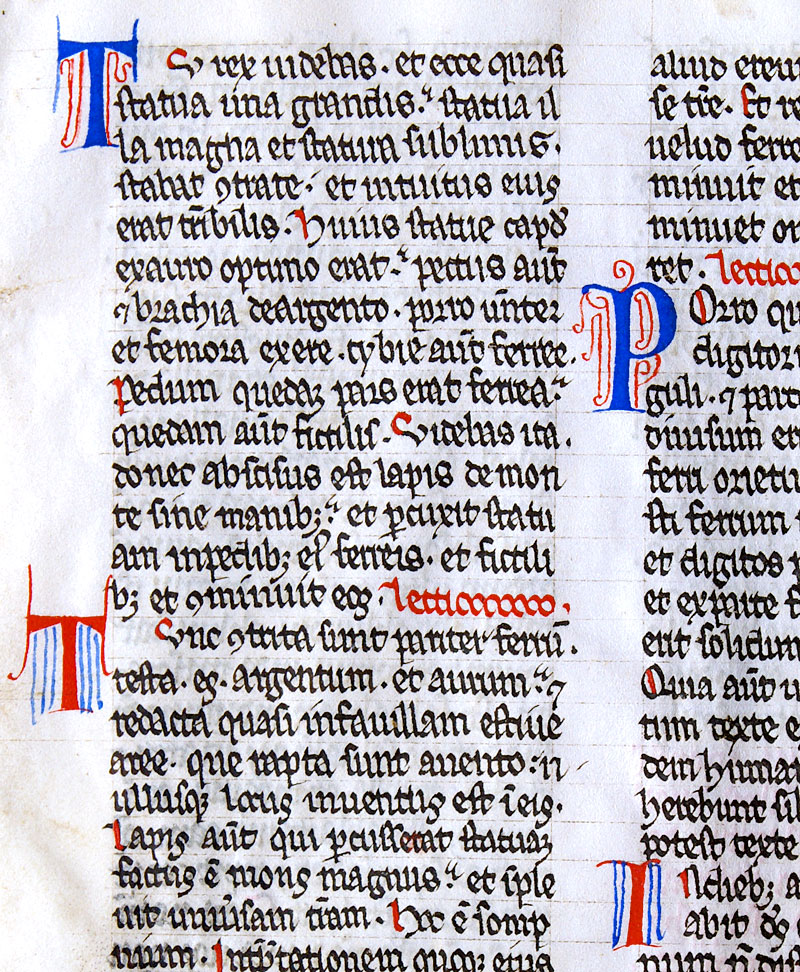 TU rex uidebas. et ecce quasi
statua una grandis. statua il
la magna et statura sublimis.
stabat ꝯtra te. et intuitus eiuꝰ
erat tr̄ibilis. Huius statue capđ
ex auro optimo erat. pectus aūt
⁊ brachia de argento. porro uēnter
et femora ex ere. tybie aūt ferree.
Pedum quedaꝫ pars erat ferrea.
quedam aūt fictilis. Uidebas ita.
donec abscisus est lapis de mon
te sine manibꝫ. et ꝑcuxit statu
am in pedibꝫ eiꝰ ferreis. et fictili
bꝫ et ꝯminuit eos. lectio
TUnc ꝯtrita sunt pariter ferrū.
testa. es. argentum. et aurum. ⁊
redacta quasi in fauillam estiue
aree. que rapta sunt a uento: n
ullusqꝫ locus inuentus est ī eis.
Lapis aūt qui ꝑcusserat statuaꝫ
factus ē mons magnus. et iple
uit uniuersam trām. Hoc ē somp
nium. Intꝑtationem quoqꝫ eius
aliud
se tr̄e. Et re
uelud ferre
minuit et
minuet
ret. lectio
POrro qu
digitor
guli. ⁊ part
diuisum er
ferri orietu
sti ferrum
et digitos p
et ex parte f
erit solidum
Quia aūt u
tum teste
dem human
herebunt si
potest
IN dieb;
abit dꝰ c
num n̄ di